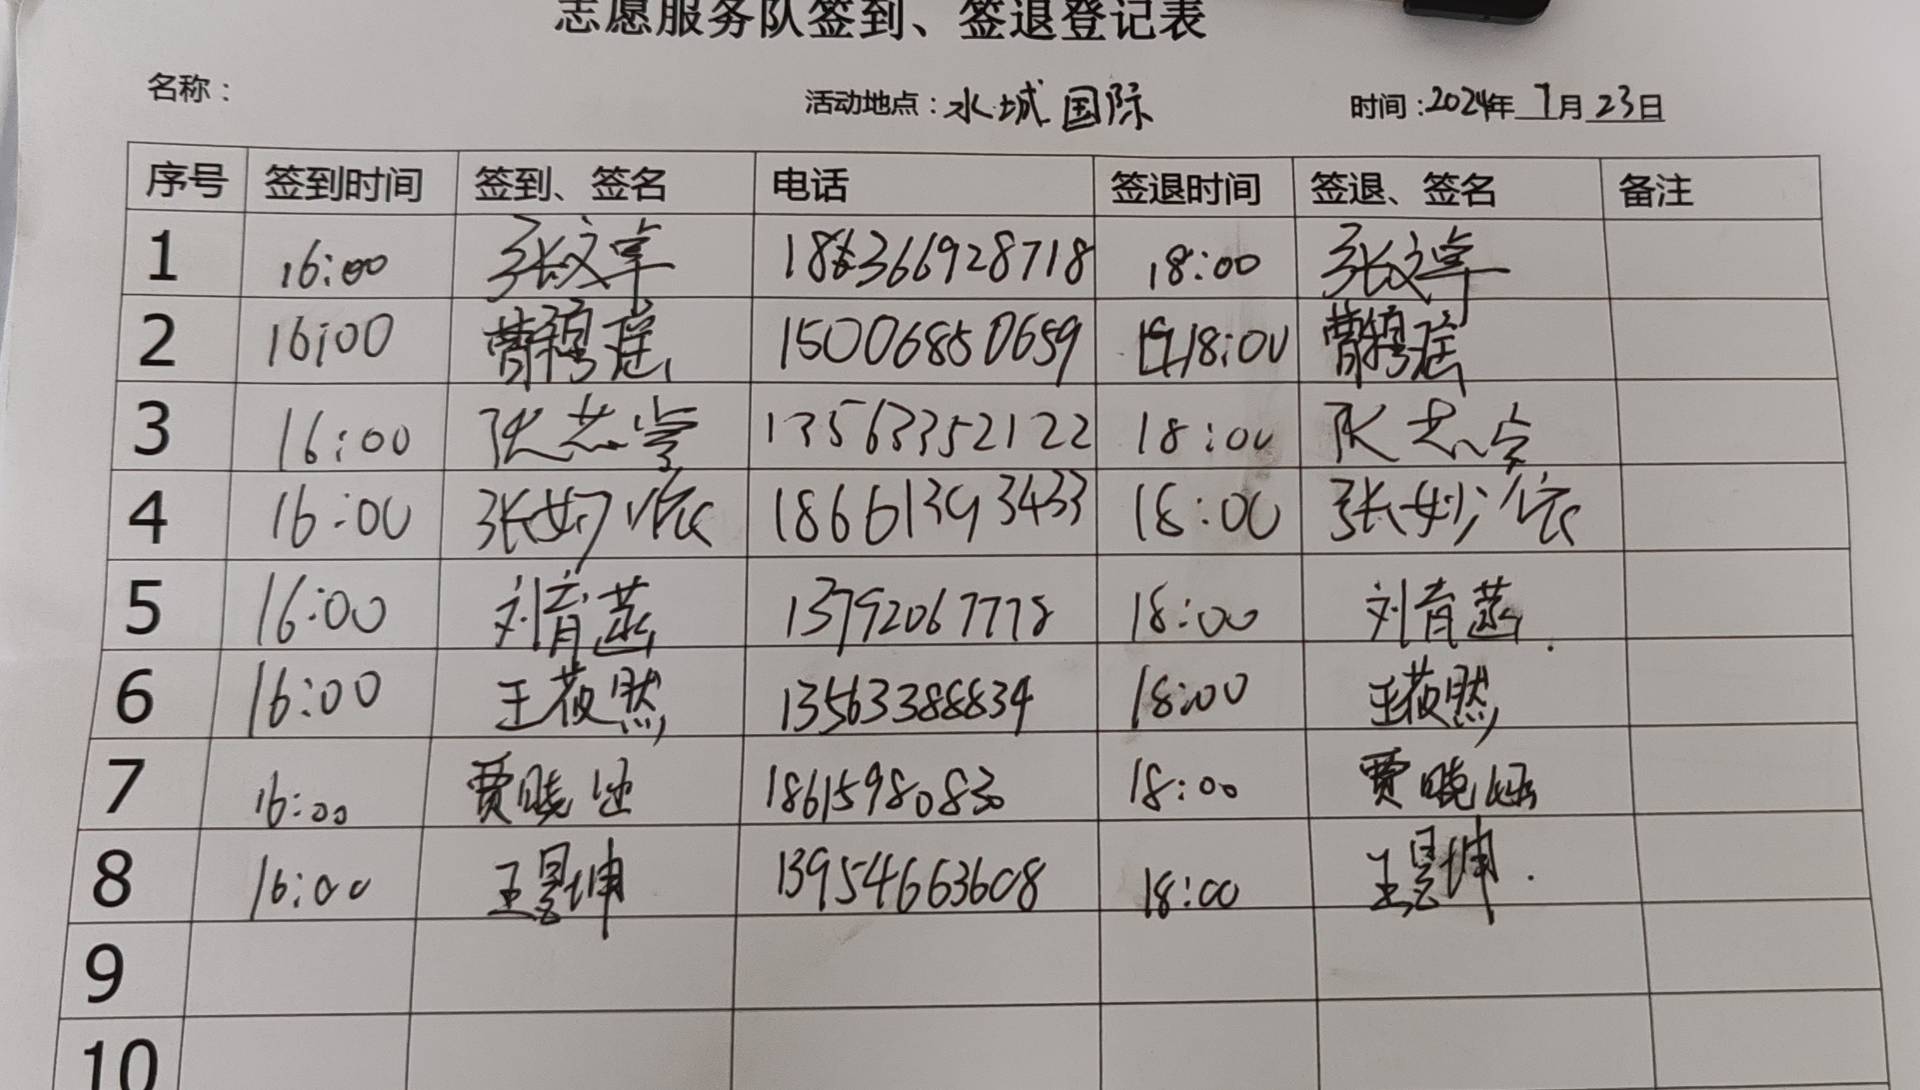 志愿服务队签到、签退登记表
名称：
活动地点：水城国际
时间：2024年 7月 23日
序号 签到时间 签到、签名 电话 签退时间 签退、签名 备注
1 16:00 张文卓 18:00 张文卓
2 16:00 15006850659 18:00
3 16:00 张志学 13563352122 18:00 张志学
4 16:00 张妙依 18661393433 18:00 张妙依
5 16:00 刘育菡 13792067778 18:00 刘育菡
6 16:00 王莜然 13563388834 18:00 王莜然
7 16:00 贾晓 18615980830 18:00 贾晓
8 16:00 王昱坤 13954663608 18:00 王昱坤
9
10